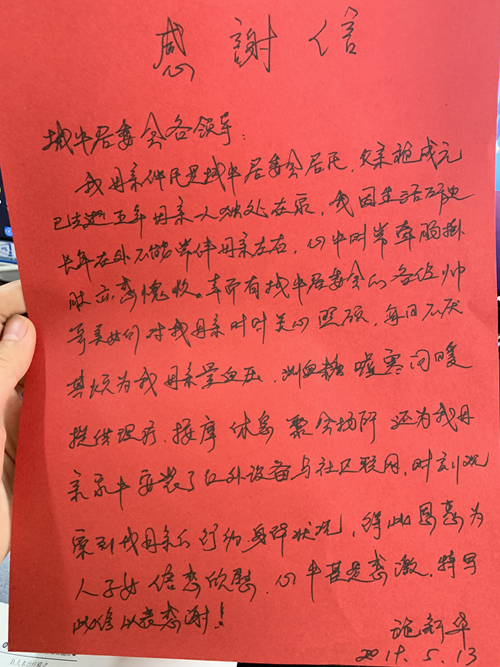 感謝信
城中居委会各领导:
我母亲仲氏是城中居委会居民,父亲施成元
已去逝五年母亲一人独处在家,我因生活历史
长年在外不能常伴母亲左右,心中时常牵肠挂
肚亦感愧疚。幸而有城中居委会的各位帅
哥美女们对我母亲时时关心照顾,每日不厌
其烦为我母亲量血压,测血糖嘘寒问暖
提供理疗,按摩休息聚会场所还为我母
亲家中安装了红外设备与社区联网,时刻观
察到我母亲的行动身体状况,得此恩惠为
人子女倍感欣慰,心中甚是感激,特写
此信以表感谢!
施新华
2019.5.13